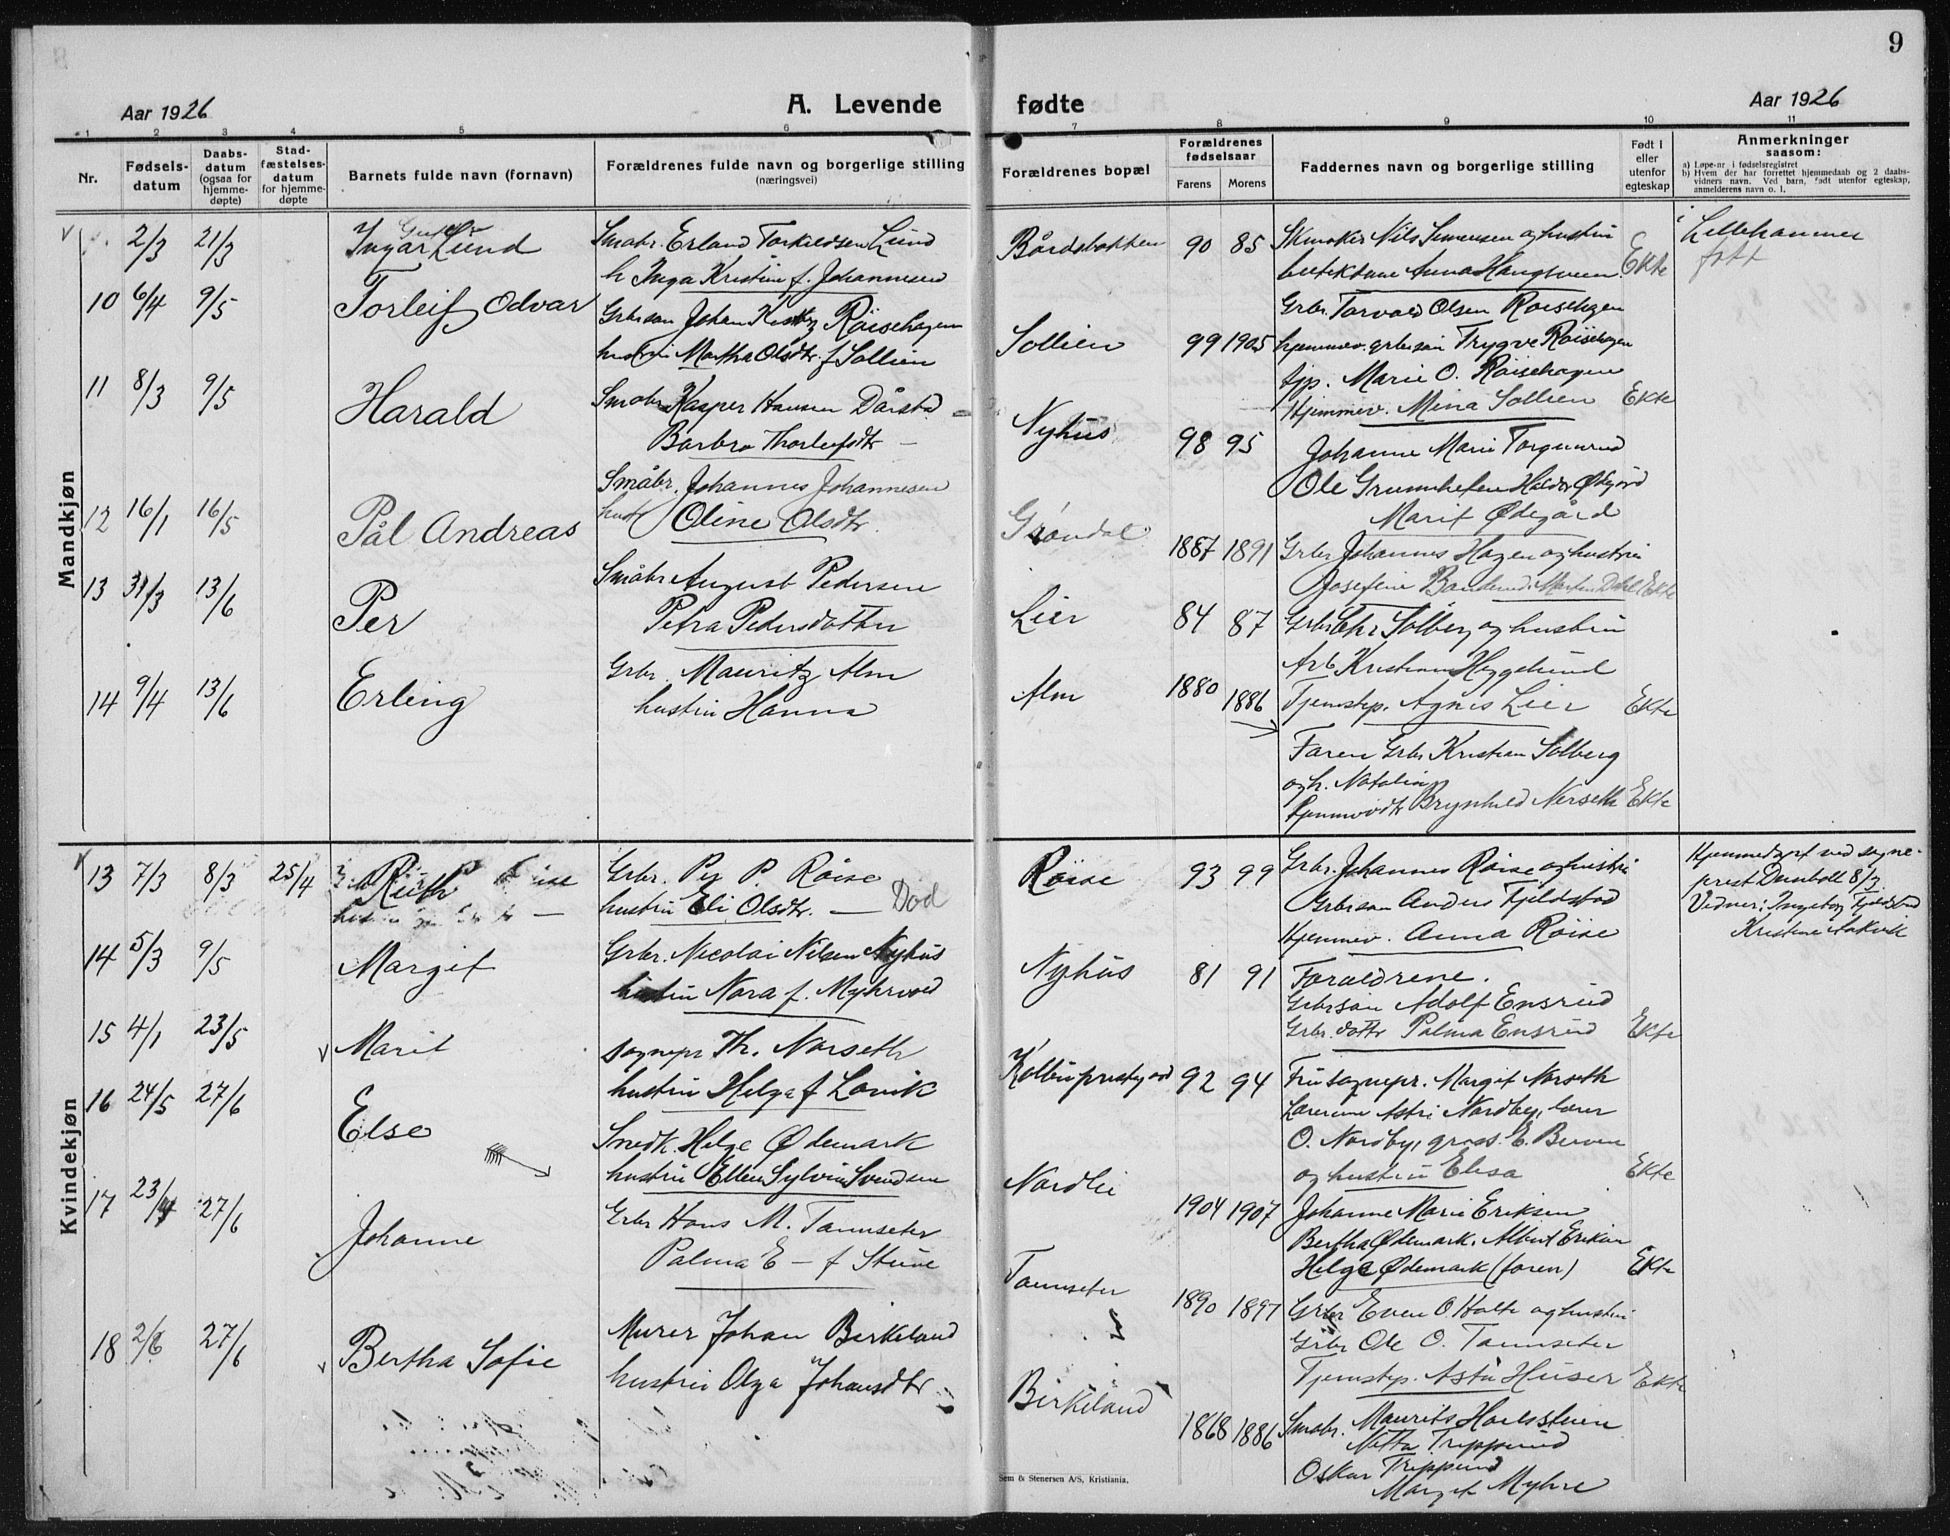 9
Aar 1926
A. Levende fødte
Aar 1926
1 2 3 4 5 6 7 8 9 10 11
Nr.
Fødsels-
datum
Daabs-
datum
(ogsaa for
hjemme-
døpte)
Stad-
fæstelses-
datum
for hjemme-
døpte
Barnets fulde navn (fornavn)
Forældrenes fulde navn og borgerlige stilling
(næringsvei)
Forældrenes bopæl
Forældrenes
fødselsaar
Farens Morens
Faddernes navn og borgerlige stilling
Født i
eller
utenfor
egteskap
Anmerkninger
saasom:
a) Løpe-nr. i fødselsregistret
b) Hvem der har forrettet hjemmedaab og 2 daabs-
vidners navn. Ved barn, født utenfor egteskap,
anmelderens navn o. l.
Mandkjøn
2/3 21/3
Ingar Lund
Småbr. Erland Torkildsen Lund
h Inga Kristine f. Johannesen
Bårdsbakken
90 85
Skmaker Nils Simensen og hustru
Anna Haugsveen
Ekte
i Lillehammer
født
10 6/4 9/5
Torleif Odvar
Grbrsøn Johan Røisehagen
hustru Martha Olsdtr. f Sollien
Sollien
99 1905
Grbr. Torvald Olsen Roisehagen
hjemmev. grbrsøn Trygve Röisehagen
tjp. Marie O. Röisehagen
Hjemmev. Mina Sollien
Ekte
11 8/3 9/5
Harald
Småbr Kasper Hansen Dårstad
Barbra Thorleifsdtr —
Nyhus
98 95
Johanne Marie Torgunrud
Ole Ødegård
Marit Ødegård
12 16/1 16/5
Pål Andreas
Småbr. Johannes Johannesen
hustr Oline Olsdtr.
Grøndal
1887 1891
Grbr Johannes Hagen og hustru
Josefine Martin Dahl Ekte
13 31/3 13/6
Per
Småbr August Pedersen
Petra Pedersdatter
Lier
84 87
Grbr Chr Solberg og hustru
Arb Kristian Heggelund
Tjenstp. Agnes Lier
Ekte
14 9/4 13/6
Erling
Grbr. Mauritz Alm
hustru Hanna
Alm
1880 1886
Faren Grbr Kristian Solberg
og h. Natalia
Brynhild Nerseth
Ekte
Kvindekjøn
13 7/3 8/3 25/4
Ruth
Grbr. Per P. Røise
hustru Eli Olsdtr. — Død
Røise
93 99
Grbr. Johannes Røise og hustru
Grbrsøn Anders Fjeldstad
Hjemmev. Anna Röise
Hjemmedøpt ved sogne-
prest 8/3
Vidner: Ingeborg Fjeldstad
Kristine Aakvik
14 5/3 9/5
Margit
Grbr. Nicolai Nilsen Nyhus
hustru Nora f. Myhrvold
Nyhus
81 91
Foraldrene.
Grbrsøn Adolf Ensrud
Grbr. dattr Palma Ensrud
Ekte
15 4/1 23/5
Marit
Sognepr Th. Norseth
hustru Helga f Lovik
Kolbu prestegård
92 94
Fru sognepr. Margit Norseth
Lærerinne Astri Nordby, lærer
O. Nordby, gross. E. Berven
og hustru Elisa
Ekte
16 24/5 27/6
Else
Smedk. Helge Ødemark
hustru Ellen Sylvia Svendsen
Nordlie
1904 1907
Johanne Marie Eriksen
Bertha Ødemark. Albert Eriksen
Helge Ødemark (faren)
Ekte
17 23/4 27/6
Johanne
Grbr Hans M. Tømmseter
Palma E — f Stuve
1890 1897
Grbr Even O Holte og hustru
Grbr Ole O. Tømmseter
Tjenstp. Asta Huser
Ekte
18 2/6 27/6
Bertha Sofie
Murer Johan Birkeland
hustru Olga Johansdtr
Birkeland
1868 1886
Småbr. Maurits
Trippsrud
Oskar Trippsrud
Margit Myhre
Sem & Stenersen A/S, Kristiania.